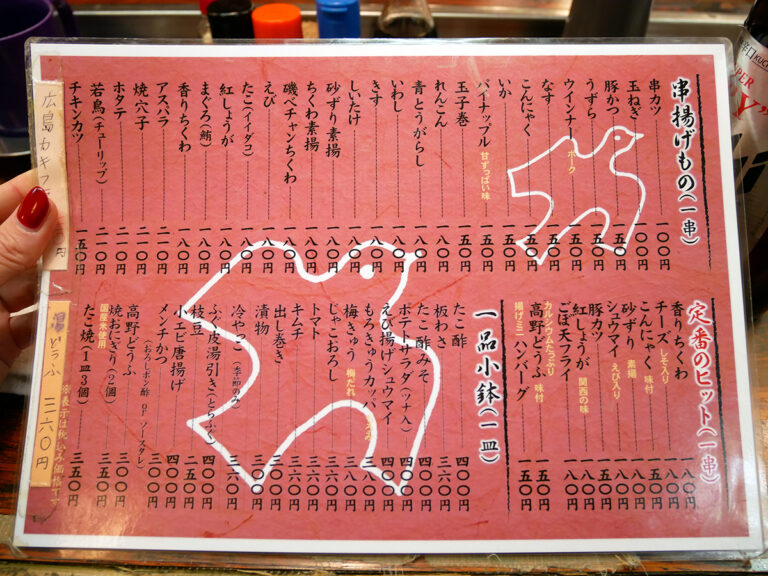 串揚げもの(一串)
串カツ 一〇〇円
玉ねぎ 一〇〇円
豚かつ 一五〇円
うずら 一五〇円
ウインナー ポーク 一五〇円
なす 一五〇円
こんにゃく 一五〇円
いか 一五〇円
パイナップル 甘ずっぱい味 一五〇円
玉子巻 一五〇円
れんこん 一八〇円
青とうがらし 一八〇円
いわし 一八〇円
きす 一八〇円
しいたけ 一八〇円
砂ずり素揚 一八〇円
ちくわ素揚 一八〇円
磯ベチャンちくわ 一八〇円
えび 一八〇円
たこ(イイダコ) 一八〇円
紅しょうが 一八〇円
まぐろ(鮪) 一八〇円
香りちくわ 一八〇円
アスパラ 二一〇円
焼穴子 二一〇円
ホタテ 二一〇円
若鳥(チューリップ) 二一〇円
チキンカツ 一五〇円
広島カキフ
定番のヒット(一串)
香りちくわ 一八〇円
チーズ しそ入り 一八〇円
こんにゃく 味付 一五〇円
砂ずり 素揚 一八〇円
シュウマイ えび入り 一八〇円
豚カツ 一五〇円
紅しょうが 関西の味 一八〇円
ごぼ天フライ 一八〇円
カルシウムたっぷり 高野どうふ 味付 一五〇円
揚げミニハンバーグ 一五〇円
一品小鉢(一皿)
たこ酢 四〇〇円
板わさ 三六〇円
たこ酢みそ 四〇〇円
ポテトサラダ(ツナ入) 四〇〇円
えび揚げシュウマイ 四〇〇円
もろきゅうカッパ 三八〇円
梅きゅう 梅だれ 三五〇円
じゃこおろし 三〇〇円
トマト 三〇〇円
キムチ 三〇〇円
出し巻き 三〇〇円
漬物 三〇〇円
冷やっこ 三六〇円
ふぐ皮湯引き(とらふぐ) 四〇〇円
枝豆 二五〇円
小エビ唐揚げ 四〇〇円
メンチかつ 三〇〇円
(おろしポン酢 or ソースタレ)
高野どうふ 三〇〇円
焼おにぎり(2個) 三五〇円
国産米使用
たこ焼(1皿3個) 三五〇円
湯どうふ 三六〇円